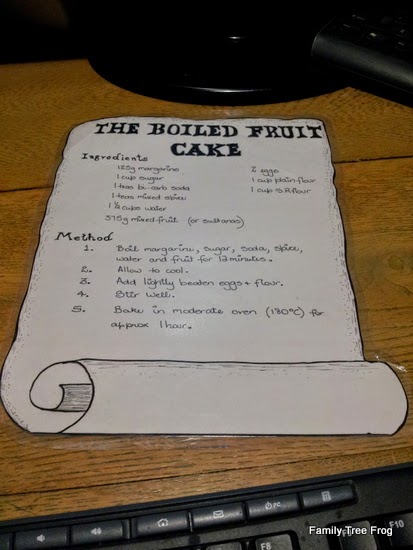 THE BOILED FRUIT
CAKE
Ingredients
125g margarine
1 cup sugar
1 teas bi-carb soda
1 teas mixed spice
1 ½ cups water
375g mixed fruit (or sultanas)
2 eggs
1 cup plain flour
1 cup S.R flour
Method
1. Boil margarine, sugar, soda, spice,
water and fruit for 12 minutes.
2. Allow to cool.
3. Add lightly beaten eggs + flour.
4. Stir well.
5. Bake in moderate oven (180°C) for
approx 1 hour.
PC
F8
F10
Family-Tree Frog